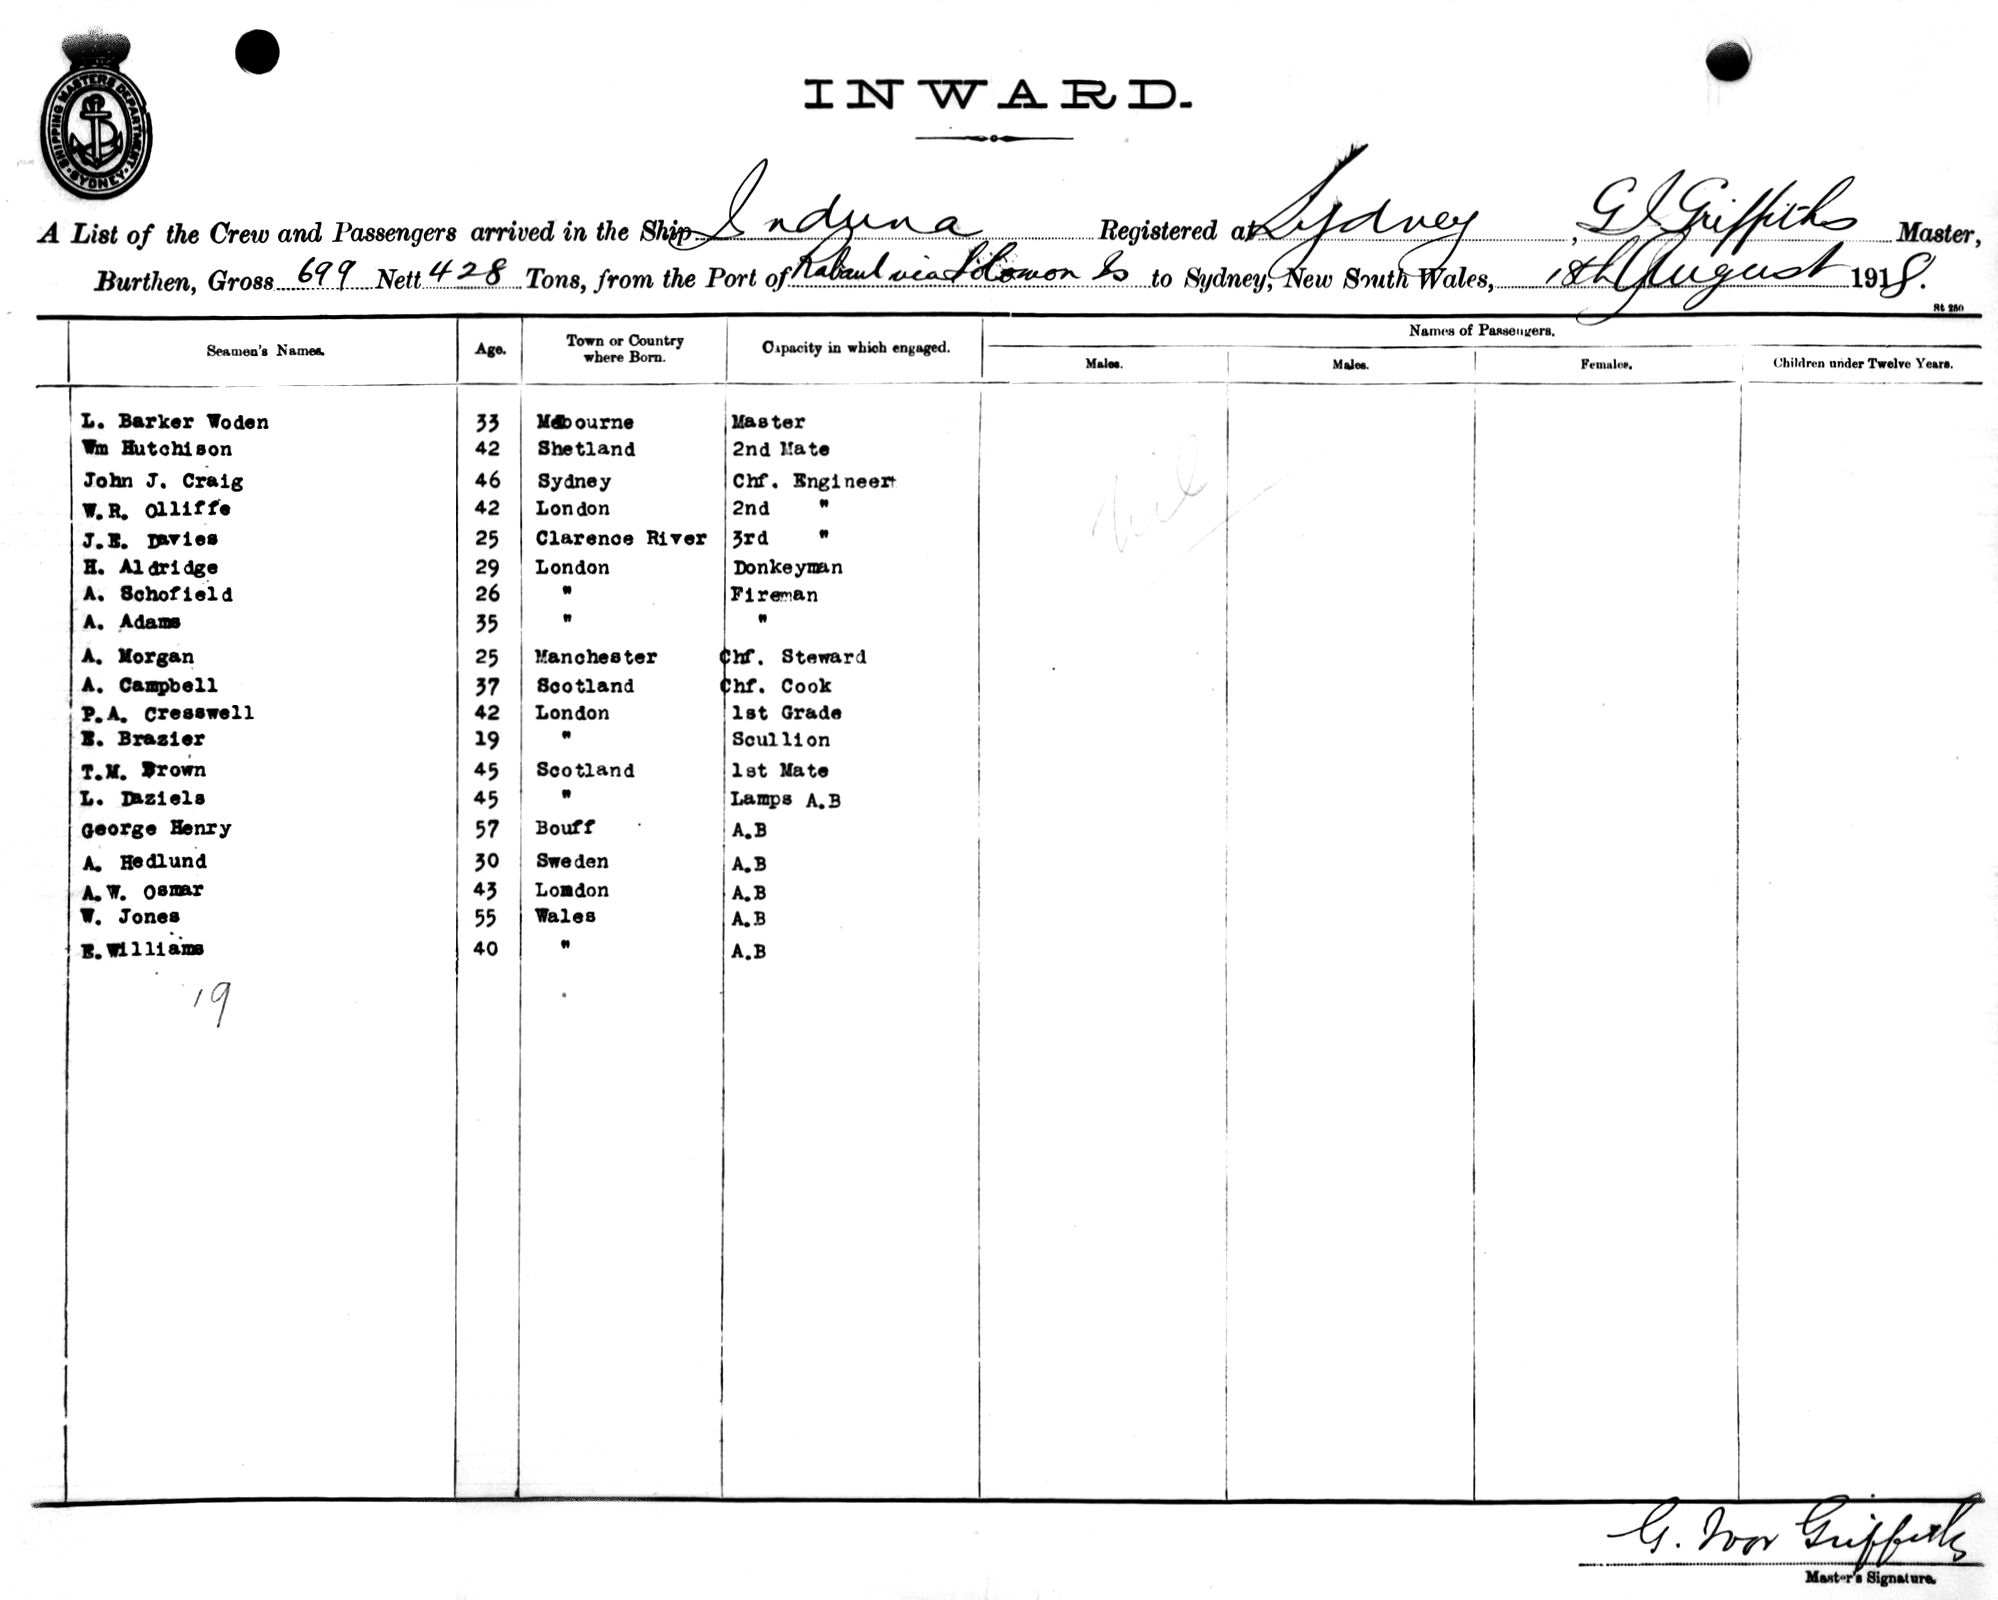 SHIPPING MASTERS DEPARTMENT
SYDNEY
INWARD.
A List of the Crew and Passengers arrived in the Ship Induna Registered at Sydney, G I Griffiths Master,
Burthen, Gross 699 Nett 428 Tons, from the Port of Rabaul via Solomon Is to Sydney, New South Wales, 18th August 1918.
St 250
Seamen's Names. Age. Town or Country where Born. Capacity in which engaged. Names of Passengers.
Males. Males. Females. Children under Twelve Years.
L. Barker Woden 33 Melbourne Master
Wm Hutchison 42 Shetland 2nd Mate
John J. Craig 46 Sydney Chf. Engineer
W.R. Olliffe 42 London 2nd "
J.E. Davies 25 Clarence River 3rd "
H. Aldridge 29 London Donkeyman
A. Schofield 26 " Fireman
A. Adams 35 " "
A. Morgan 25 Manchester Chf. Steward
A. Campbell 37 Scotland Chf. Cook
P.A. Cresswell 42 London 1st Grade
E. Brazier 19 " Scullion
T.M. Brown 45 Scotland 1st Mate
L. Daziels 45 " Lamps A.B
George Henry 57 Bouff A.B
A. Hedlund 30 Sweden A.B
A.W. Osmar 43 London A.B
W. Jones 55 Wales A.B
E. Williams 40 " A.B
nil
19
G. Ivor Griffiths
Master's Signature.